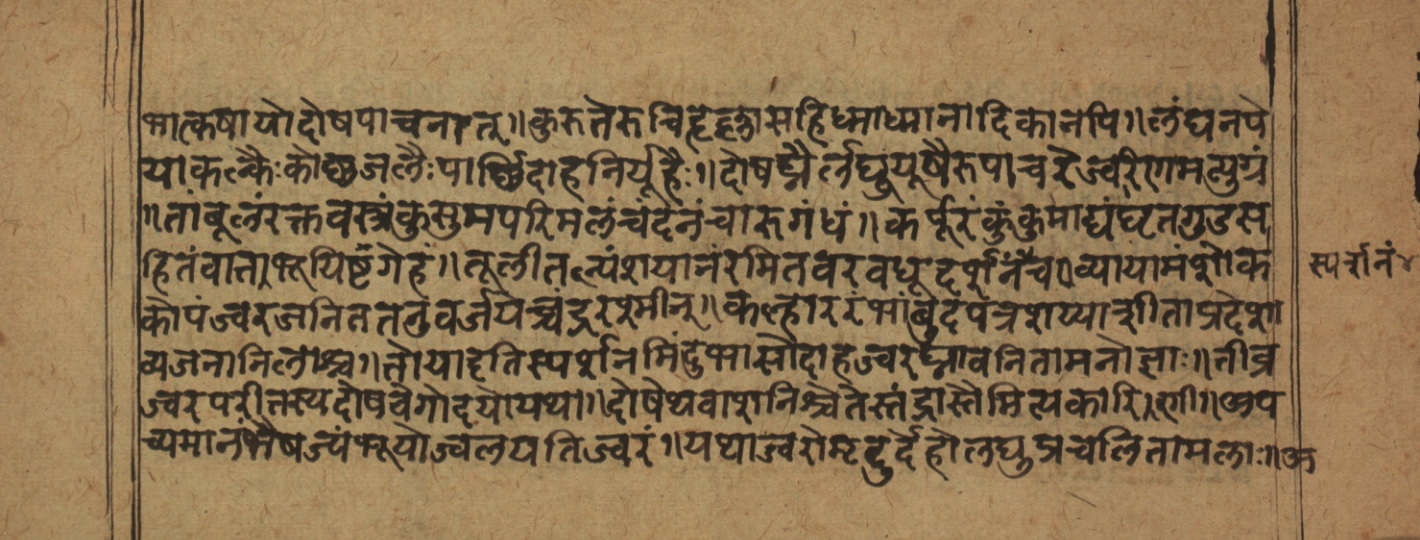 भात्कषायोदोषपाचनात्॥कुरुतेरुचिहृहृत्तासहिध्माध्मानादिकानपि॥लंघनपे
याकल्कैःकोष्णजलैःपार्श्चिदाहनिर्यूहैः॥दोषघ्नैर्लघुयूषैरुपाचरेज्वरिणमत्युग्रं
॥तांबूलंरक्तवस्त्रंकुसुमपरिमलंचंदनंचारुगंधं॥कर्पूरंकुंकुमाद्यंघृतगुडस
हितंवार्त्ताभूयिष्टंगेहं॥तूलीतल्पंशयानंरमितवरवधूदर्शनंचैव॥व्यायामंशोक
कोपंज्वरजनिततनुवर्जयेच्चंद्ररश्मीन्॥कल्हाररंभांबुदपत्रशय्याशीताप्रदेशा
व्यजनानिलाश्च॥तोयादृतिस्पर्शनमिंदुभासोदाहज्वरघ्नावनितामनोज्ञाः॥तीव्र
ज्वरपरीतस्यदोषवेगोदयोयथा॥दोषेथवाशनिश्चैतेस्तंद्रास्तैमित्यकारिणी॥अप
च्यमानंभैषज्यंभूयोज्वलयतिज्वरं॥यथाज्वरोमृदुर्देहोलघुप्रचलितामलाः॥अ
स्पर्शनं४